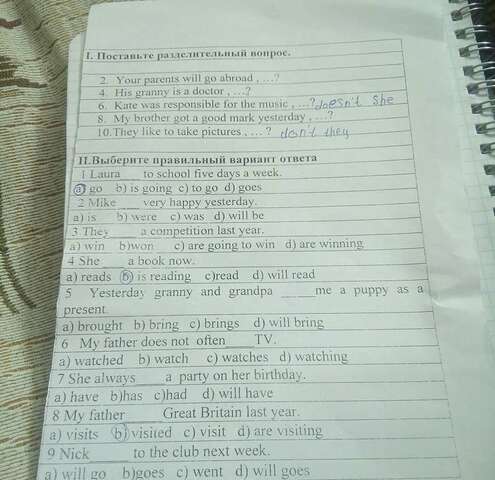 I. Поставьте разделительный вопрос.
2. Your parents will go abroad , ...?
4. His granny is a doctor , ...?
6. Kate was responsible for the music , ...? doesn't she
8. My brother got a good mark yesterday , ...?
10. They like to take pictures , ... ? don't they
II.Выберите правильный вариант ответа
1 Laura___ to school five days a week.
a) go b) is going c) to go d) goes
2 Mike ___ very happy yesterday.
a) is b) were c) was d) will be
3 They____ a competition last year.
a) win b)won c) are going to win d) are winning
4 She____ a book now.
a) reads b) is reading c)read d) will read
5 Yesterday granny and grandpa _____me a puppy as a
present.
a) brought b) bring c) brings d) will bring
6 My father does not often____ TV.
a) watched b) watch c) watches d) watching
7 She always____ a party on her birthday.
a) have b)has c)had d) will have
8 My father_____ Great Britain last year.
a) visits b) visited c) visit d) are visiting
9 Nick _____ to the club next week.
a) will go b)goes c) went d) will goes